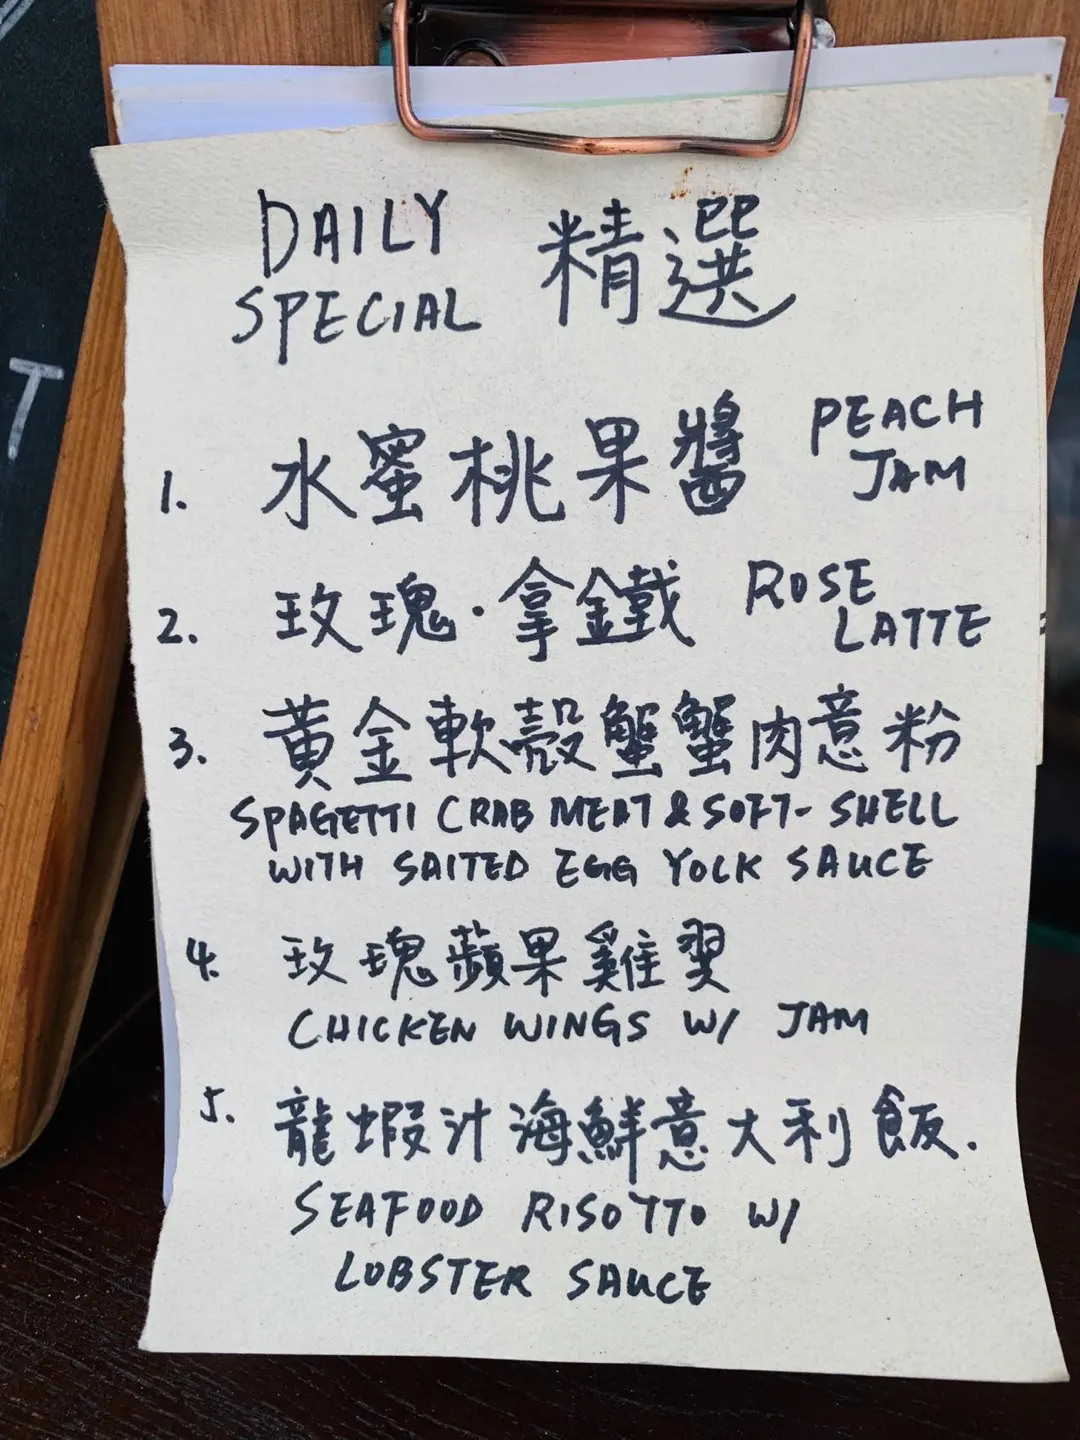 T
DAILY 精選
SPECIAL
1. 水蜜桃果醬 PEACH
JAM
2. 玫瑰·拿鐵 ROSE
LATTE
3. 黃金軟殼蟹蟹肉意粉
SPAGETTI CRAB MEAT & SOFT-SHELL
WITH SAITED EGG YOLK SAUCE
4. 玫瑰蘋果雞翼
CHICKEN WINGS W/ JAM
5. 龍蝦汁海鮮意大利飯.
SEAFOOD RISOTTO W/
LOBSTER SAUCE